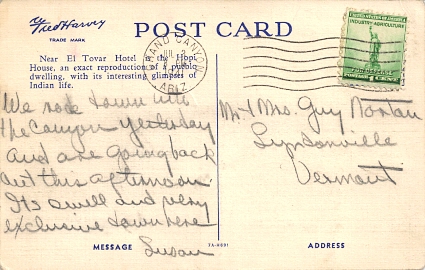 Fred Harvey
TRADE MARK
POST CARD
Near El Tovar Hotel is the Hopi
House, an exact reproduction of a pueblo
dwelling, with its interesting glimpses of
Indian life.
GRAND CANYON
ARIZ
UNITED STATES OF AMERICA
INDUSTRY AGRICULTURE
FOR DEFENSE
POSTAGE 1 CENT
We rode down into
the Canyon yesterday
and are going back
out this afternoon
Its swell and very
exclusive down here
Susan
Mr & Mrs. Guy
Lyndonville
Vermont
MESSAGE
7A-H891
ADDRESS